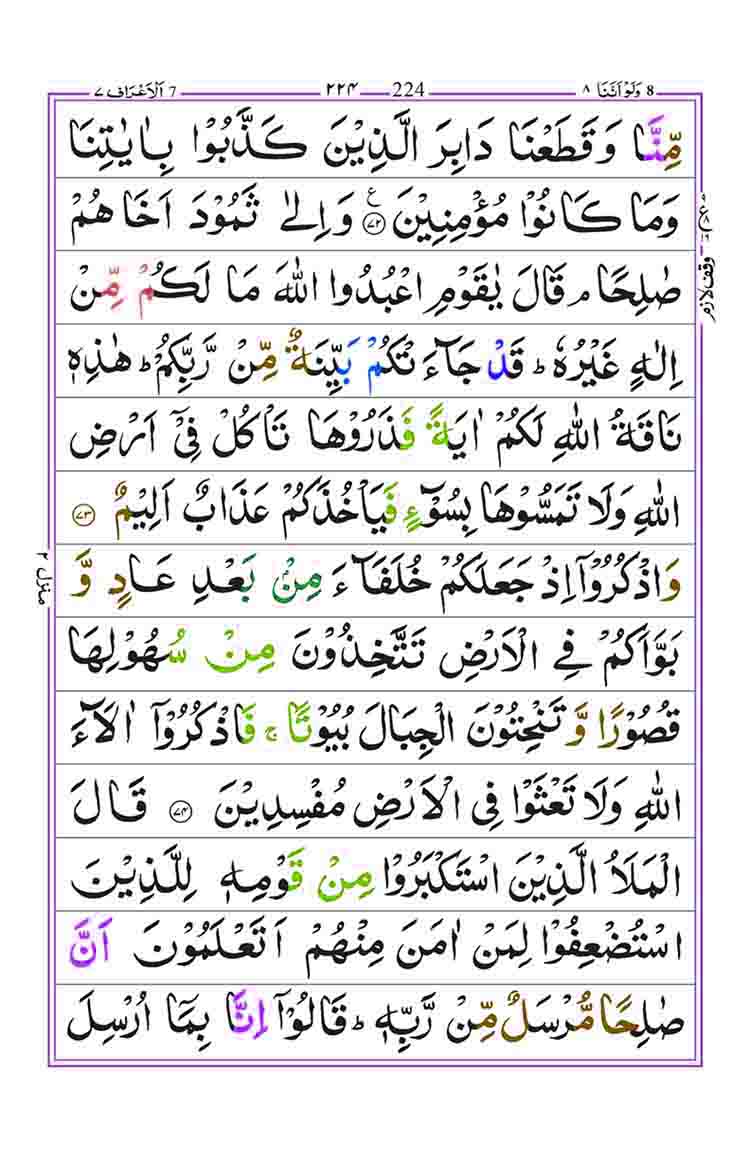 8 وَلَوْ اَنَّنَا ٨ 224 ٢٢٤ 7 اَلْاَعْرَاف ٧
مِّنَّا وَقَطَعْنَا دَابِرَ الَّذِيْنَ كَذَّبُوْا بِاٰيٰتِنَا
وَمَا كَانُوْا مُؤْمِنِيْنَ ﴿٧٢﴾ ع وَاِلٰى ثَمُوْدَ اَخَاهُمْ
صٰلِحًا ۘ قَالَ يٰقَوْمِ اعْبُدُوا اللّٰهَ مَا لَكُمْ مِّنْ
اِلٰهٍ غَيْرُهٗ ؕ قَدْ جَآءَتْكُمْ بَيِّنَةٌ مِّنْ رَّبِّكُمْ ؕ هٰذِهٖ
نَاقَةُ اللّٰهِ لَكُمْ اٰيَةً فَذَرُوْهَا تَاْكُلْ فِيْۤ اَرْضِ
اللّٰهِ وَلَا تَمَسُّوْهَا بِسُوْٓءٍ فَيَاْخُذَكُمْ عَذَابٌ اَلِيْمٌ ﴿٧٣﴾
وَاذْكُرُوْۤا اِذْ جَعَلَكُمْ خُلَفَآءَ مِنْۢ بَعْدِ عَادٍ وَّ
بَوَّاَكُمْ فِي الْاَرْضِ تَتَّخِذُوْنَ مِنْ سُهُوْلِهَا
قُصُوْرًا وَّتَنْحِتُوْنَ الْجِبَالَ بُيُوْتًا ۚ فَاذْكُرُوْۤا اٰلَآءَ
اللّٰهِ وَلَا تَعْثَوْا فِى الْاَرْضِ مُفْسِدِيْنَ ﴿٧٤﴾ قَالَ
الْمَلَاُ الَّذِيْنَ اسْتَكْبَرُوْا مِنْ قَوْمِهٖ لِلَّذِيْنَ
اسْتُضْعِفُوْا لِمَنْ اٰمَنَ مِنْهُمْ اَتَعْلَمُوْنَ اَنَّ
صٰلِحًا مُّرْسَلٌ مِّنْ رَّبِّهٖ ؕ قَالُوْۤا اِنَّا بِمَاۤ اُرْسِلَ
وقف لازم
منزل ٢